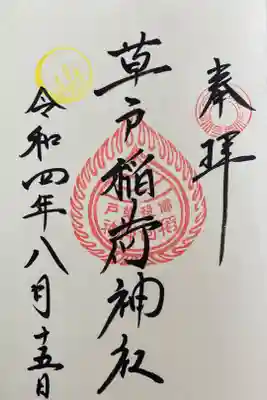 奉拝
草戸稲荷神社
令和四年八月十五日